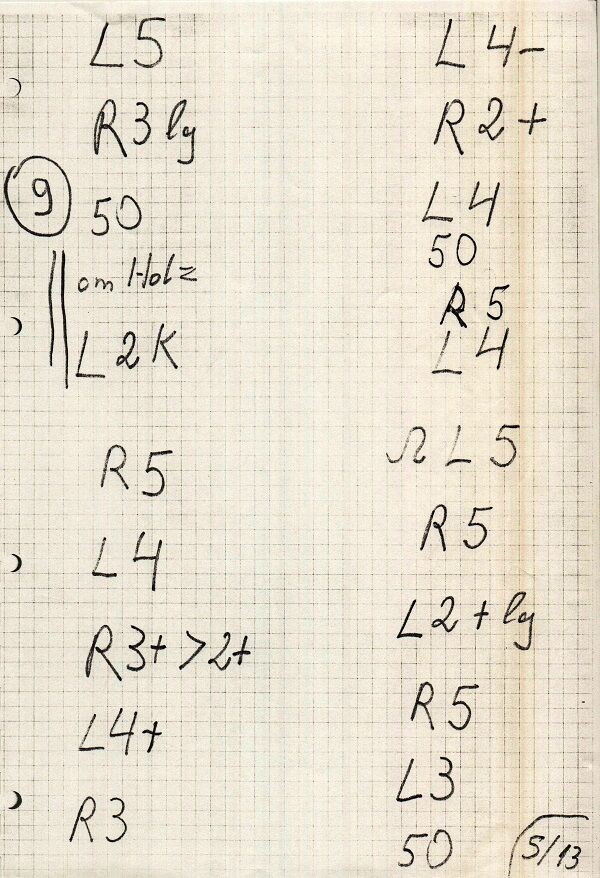 L5
R3 lg
9
50
am Holz
L2K
R5
L4
R3+ >2+
L4+
R3
L4-
R2+
L4
50
R5
L4
Ω L5
R5
L2+ lg
R5
L3
50
5/13